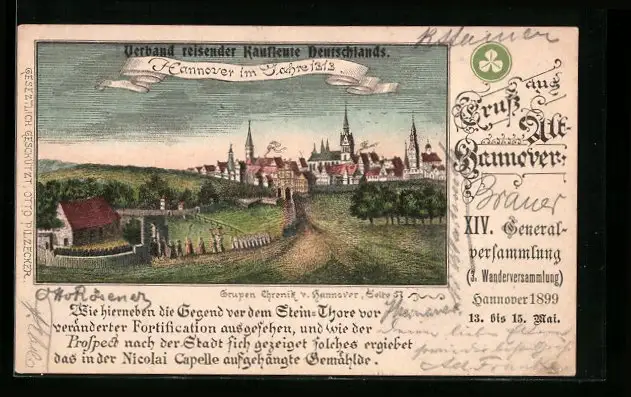 Verband reisender Kaufleute Deutschlands.
Hannover im Jahre 1313
Gruß aus
Alt-
Hannover.
Brauer
XIV. General-
versammlung
(3. Wanderversammlung)
Hannover 1899
13. bis 15. Mai.
GESETZLICH GESCHÜTZT, OTTO PILZECKER.
Grupen Chronik v. Hannover, Seite 51
Wie hierneben die Gegend vor dem Stein-Thore vor
veränderter Fortification ausgesehen, und wie der
Prospect nach der Stadt sich gezeiget solches ergiebet
das in der Nicolai Capelle aufgehängte Gemählde.